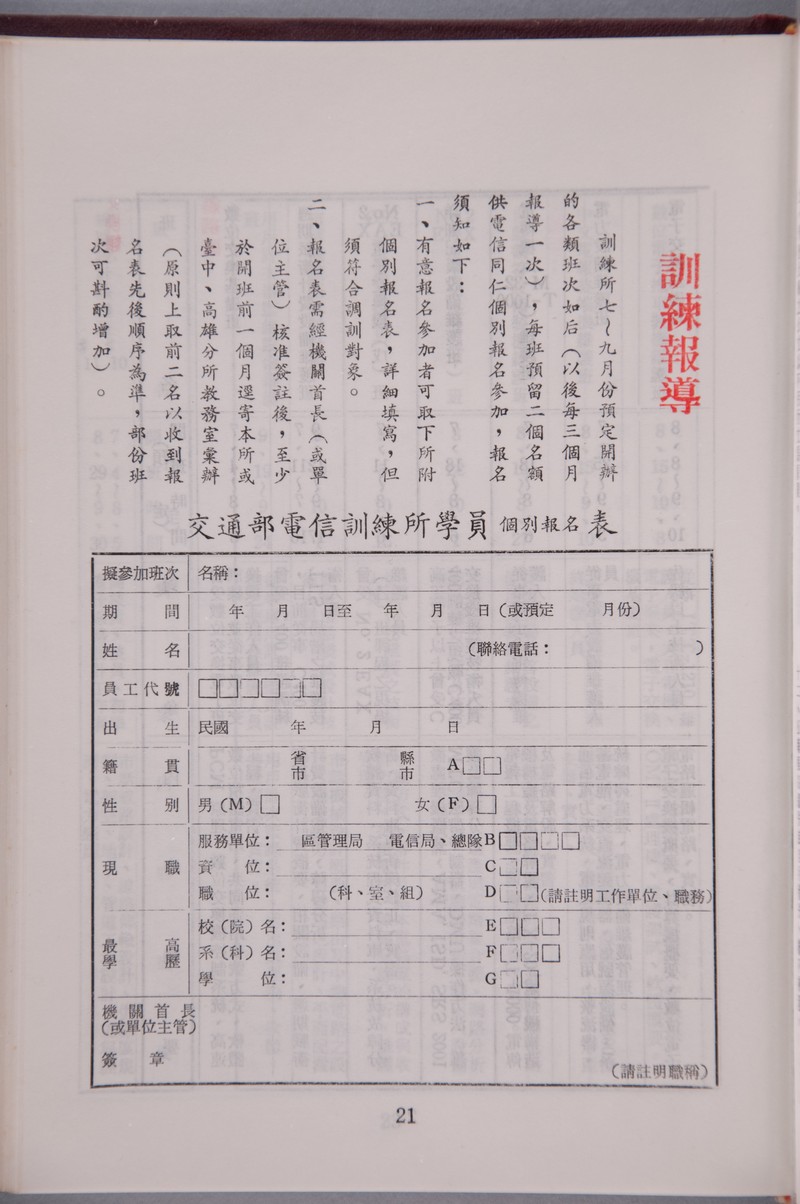 訓練報導
訓練所七~九月份預定開辦
的各類班次如后(以後每三個月
報導一次),每班預留二個名額
供電信同仁個別報名參加,報名
須知如下:
一、有意報名參加者可取下所附
個別報名表,詳細填寫,但
須符合調訓對象。
二、報名表需經機關首長(或單
位主管)核准簽註後,至少
於開班前一個月逕寄本所或
臺中、高雄分所教務室彙辦
(原則上取前二名以收到報
名表先後順序為準,部份班
次可斟酌增加)。
交通部電信訓練所學員個別報名表
擬參加班次 名稱:
期間 年 月 日至 年 月 日(或預定 月份)
姓名 (聯絡電話: )
員工代號 □□□□□□
出生 民國 年 月 日
籍貫 省市 縣市 A□□
性別 男(M)□ 女(F)□
現職 服務單位: 區管理局 電信局、總隊B□□□□
資位: C□□
職位: (科、室、組) D□□(請註明工作單位、職務)
最高學歷 校(院)名: E□□□
系(科)名: F□□□
學位: G□□
機關首長
(或單位主管)
簽章 (請註明職稱)
21